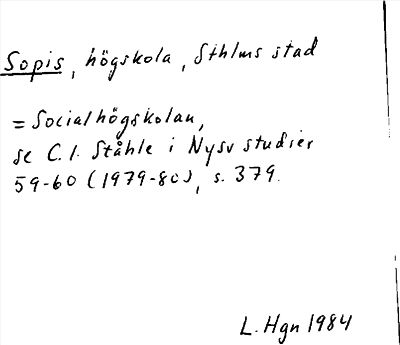 Sopis, högskola, Sthlms stad
= Socialhögskolan,
se C. I. Ståhle i Nysv studier
59-60 (1979-80), s. 379.
L. Hgn 1984